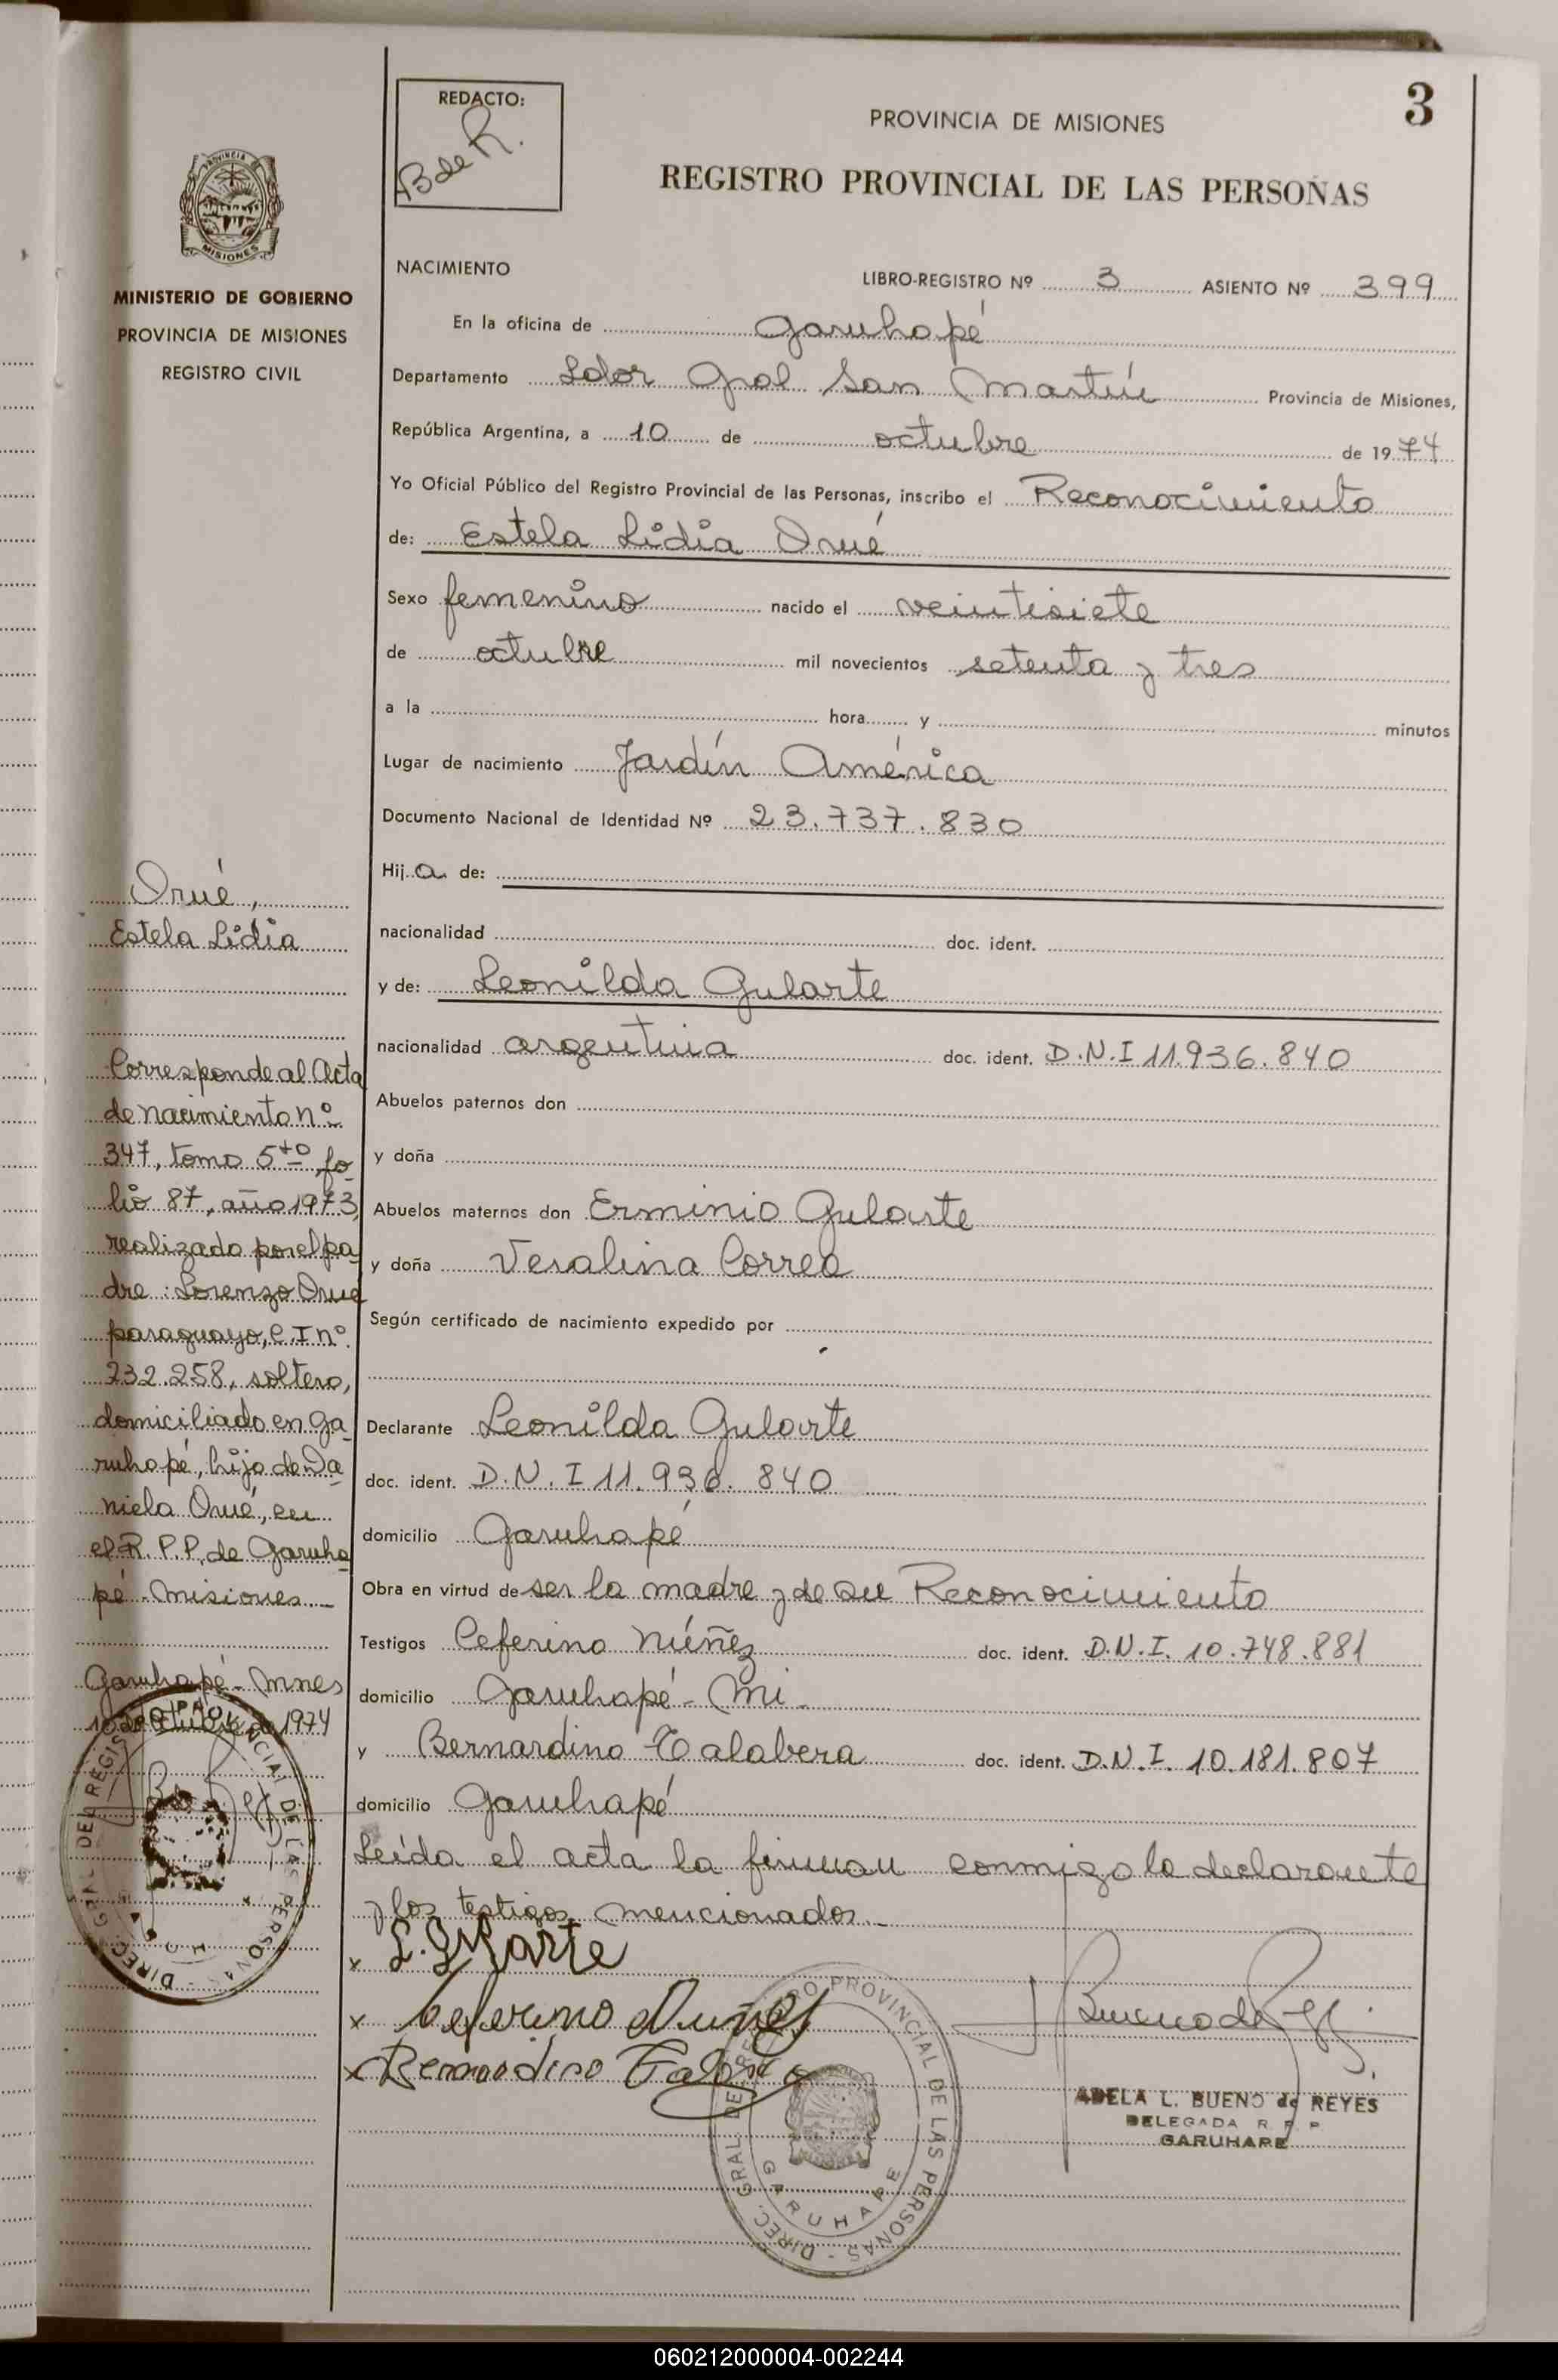 3
REDACTO:
B de R.
PROVINCIA DE MISIONES
REGISTRO PROVINCIAL DE LAS PERSONAS
PROVINCIA DE
MISIONES
MINISTERIO DE GOBIERNO
PROVINCIA DE MISIONES
REGISTRO CIVIL
NACIMIENTO
LIBRO-REGISTRO Nº 3 ASIENTO Nº 399
En la oficina de Garuhapé
Departamento Ldor Gral San Martín Provincia de Misiones,
República Argentina, a 10 de octubre de 1974
Yo Oficial Público del Registro Provincial de las Personas, inscribo el Reconocimiento
de: Estela Lidia Orué
Sexo femenino nacido el veintisiete
de octubre mil novecientos setenta y tres
a la hora y minutos
Lugar de nacimiento Jardín América
Documento Nacional de Identidad Nº 23.737.830
Hija de:
nacionalidad doc. ident.
y de: Leonilda Gularte
nacionalidad argentina doc. ident. D.N.I 11.936.840
Abuelos paternos don
y doña
Abuelos maternos don Erminio Gularte
y doña Veralina Correa
Según certificado de nacimiento expedido por
Declarante Leonilda Gularte
doc. ident. D.N.I 11.936.840
domicilio Garuhapé
Obra en virtud de ser la madre y de su Reconocimiento
Testigos Ceferino Núñez doc. ident. D.N.I. 10.748.881
domicilio Garuhapé - Mi
y Bernardino Talabera doc. ident. D.N.I. 10.181.807
domicilio Garuhapé
Leída el acta la firman conmigo la declarante
y los testigos mencionados.-
x L. Gularte
x Ceferino Nuñez
x Bernardino
Bueno de
ADELA L. BUENO de REYES
DELEGADA R P P
GARUHAPE
DIREC. GRAL. DEL REGISTRO PROVINCIAL DE LAS PERSONAS
GARUHAPE
Orué,
Estela Lidia
Corresponde al Acta
de nacimiento nº
347, tomo 5to, fo-
lio 87, año 1973,
realizado por el pa-
dre: Lorenzo Orué
paraguayo, C.I nº
232.258, soltero,
domiciliado en Ga-
ruhapé, hijo de Da-
niela Orué, en
el R.P.P. de Garuha-
pé - Misiones.-
Garuhapé - Mnes
10 de Octubre de 1974
DIREC. GRAL. DEL REGISTRO PROVINCIAL DE LAS PERSONAS
060212000004-002244